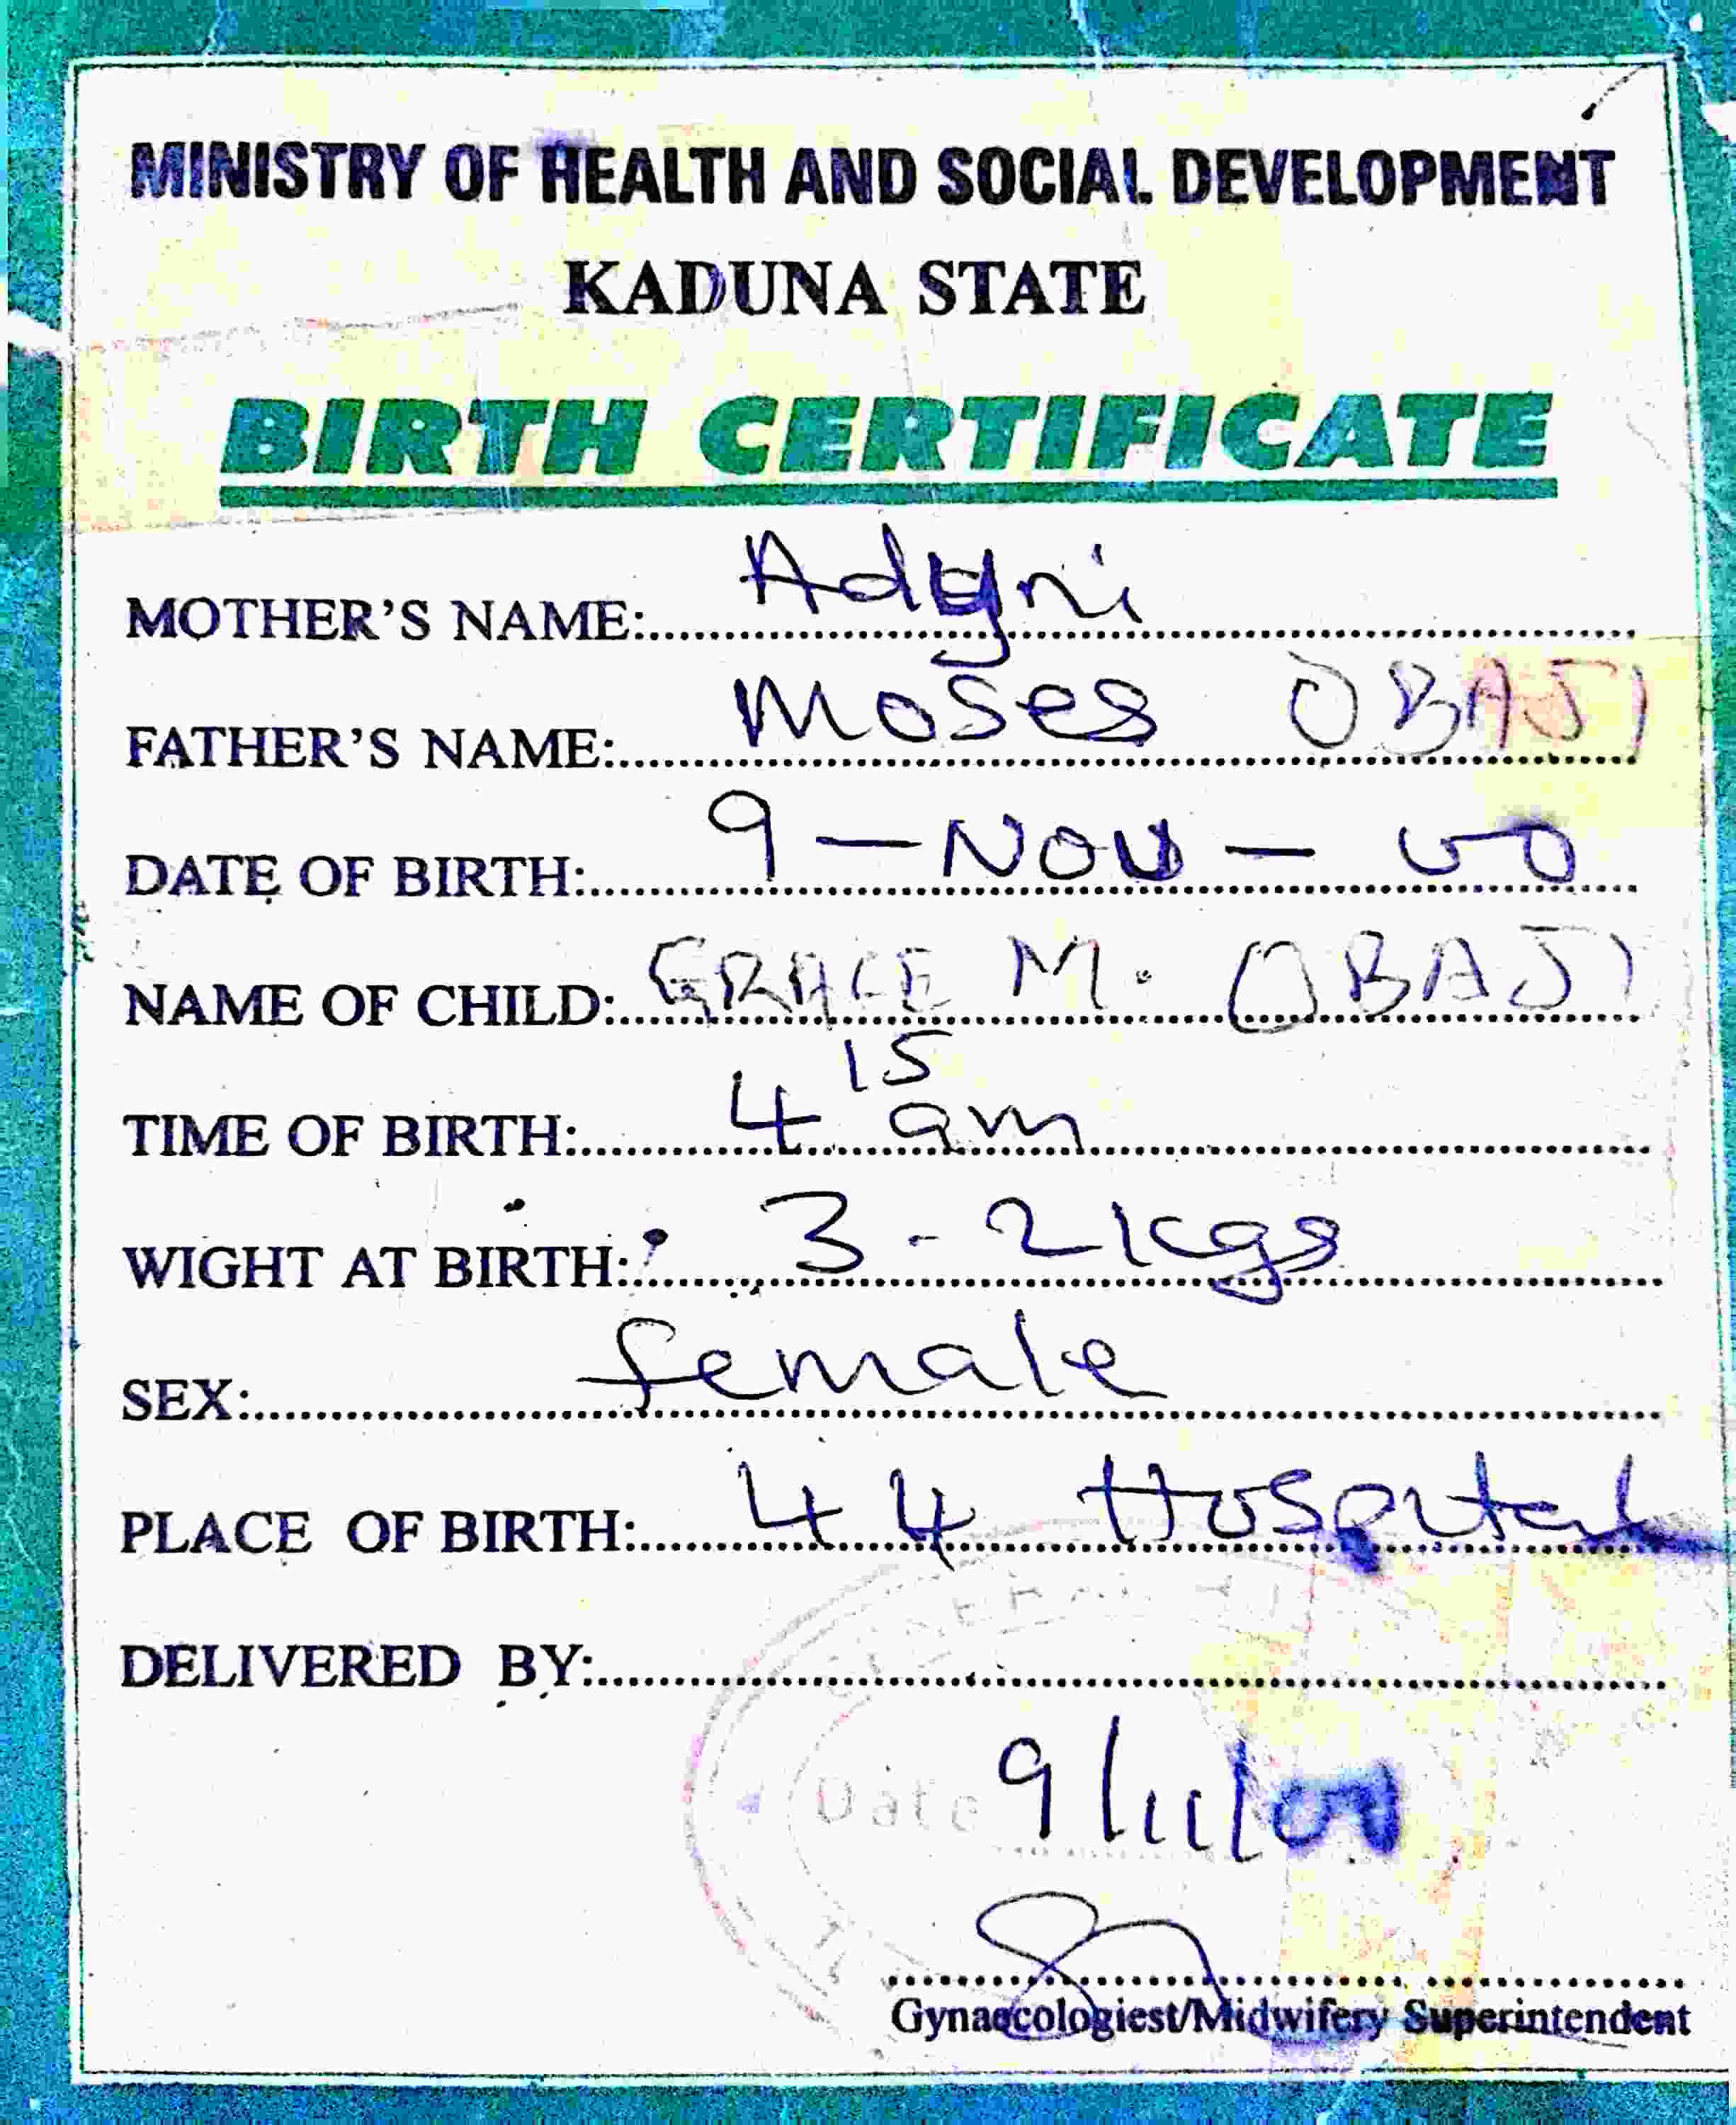 MINISTRY OF HEALTH AND SOCIAL DEVELOPMENT
KADUNA STATE
BIRTH CERTIFICATE
MOTHER'S NAME:
FATHER'S NAME: Moses OBAJI
DATE OF BIRTH: 9 - NOV - 00
NAME OF CHILD: GRACE M. OBAJI
TIME OF BIRTH: 4 15 am
WIGHT AT BIRTH: 3 - 2 kgs
SEX: female
PLACE OF BIRTH: 44 Hospital
DELIVERED BY:
Date 9/11/00
Gynaecologiest/Midwifery Superintendent